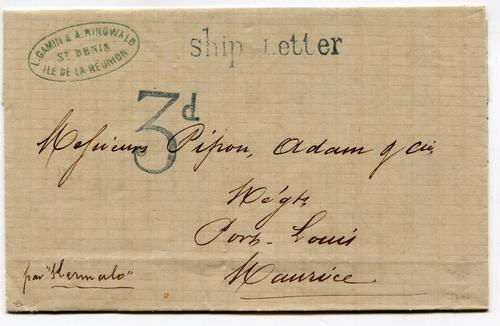 L. GAMIN & A. RINGWALD
ST DENIS
ILE DE LA RÉUNION
Ship Letter
3d
Messieurs Pipon, Adam & Cie
Négts
Port-Louis
Maurice
par "Kermalo"